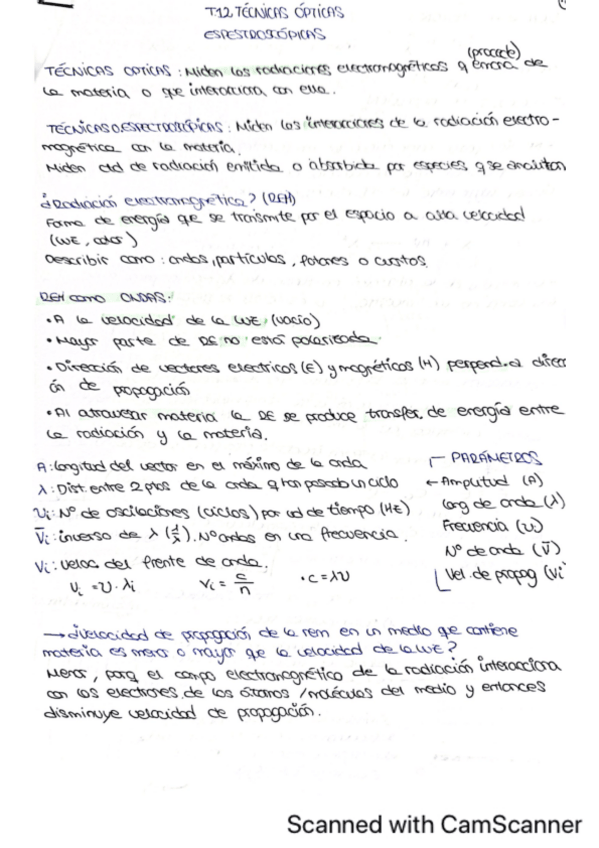 T.12 TÉCNICAS ÓPTICAS
ESPESTROSCÓPICAS
(procede)
TÉCNICAS OPTICAS : Miden las radiaciones electromagnéticas q emana de
la materia o que interacciona con ella.
TÉCNICAS O. ESPECTROSCÓPICAS : Miden las interacciones de la radiación electro-
magnética con la materia.
Miden ctd de radiación emitida o absorbida por especies q se analizan
¿Radiación electromagnética? (REM)
Forma de energía que se transmite por el espacio a alta velocidad
(luz, calor)
Describir como : ondas, partículas, fotones o cuantos.
REM como ONDAS:
• A la velocidad de la luz (vacío)
• Mayor parte de RE no está polarizada.
• Dirección de vectores electricos (E) y magnéticos (M) perpend. a direcc
ón de propagación
• Al atravesar materia la RE se produce transfer. de energía entre
la radiación y la materia.
A: longitud del vector en el máximo de la onda
λ: Dist. entre 2 ptos de la onda q han pasado un ciclo
υi: Nº de oscilaciones (ciclos) por ud de tiempo (Hz)
ν̅i: inverso de λ (1/λ). Nº ondas en una frecuencia.
Vi: veloc. del frente de onda.
Vi = υ · λi   Vi = c/n   • c = λυ
PARÁMETROS
← Amplitud (A)
Long de onda (λ)
Frecuencia (υi)
Nº de onda (ν̅)
Vel. de propag (vi
→ ¿Velocidad de propagación de la rem en un medio que contiene
materia es menor o mayor que la velocidad de la luz?
Menor, porq el campo electromagnético de la radiación interacciona
con los electrones de los átomos / moléculas del medio y entonces
disminuye velocidad de propagación.
Scanned with CamScanner